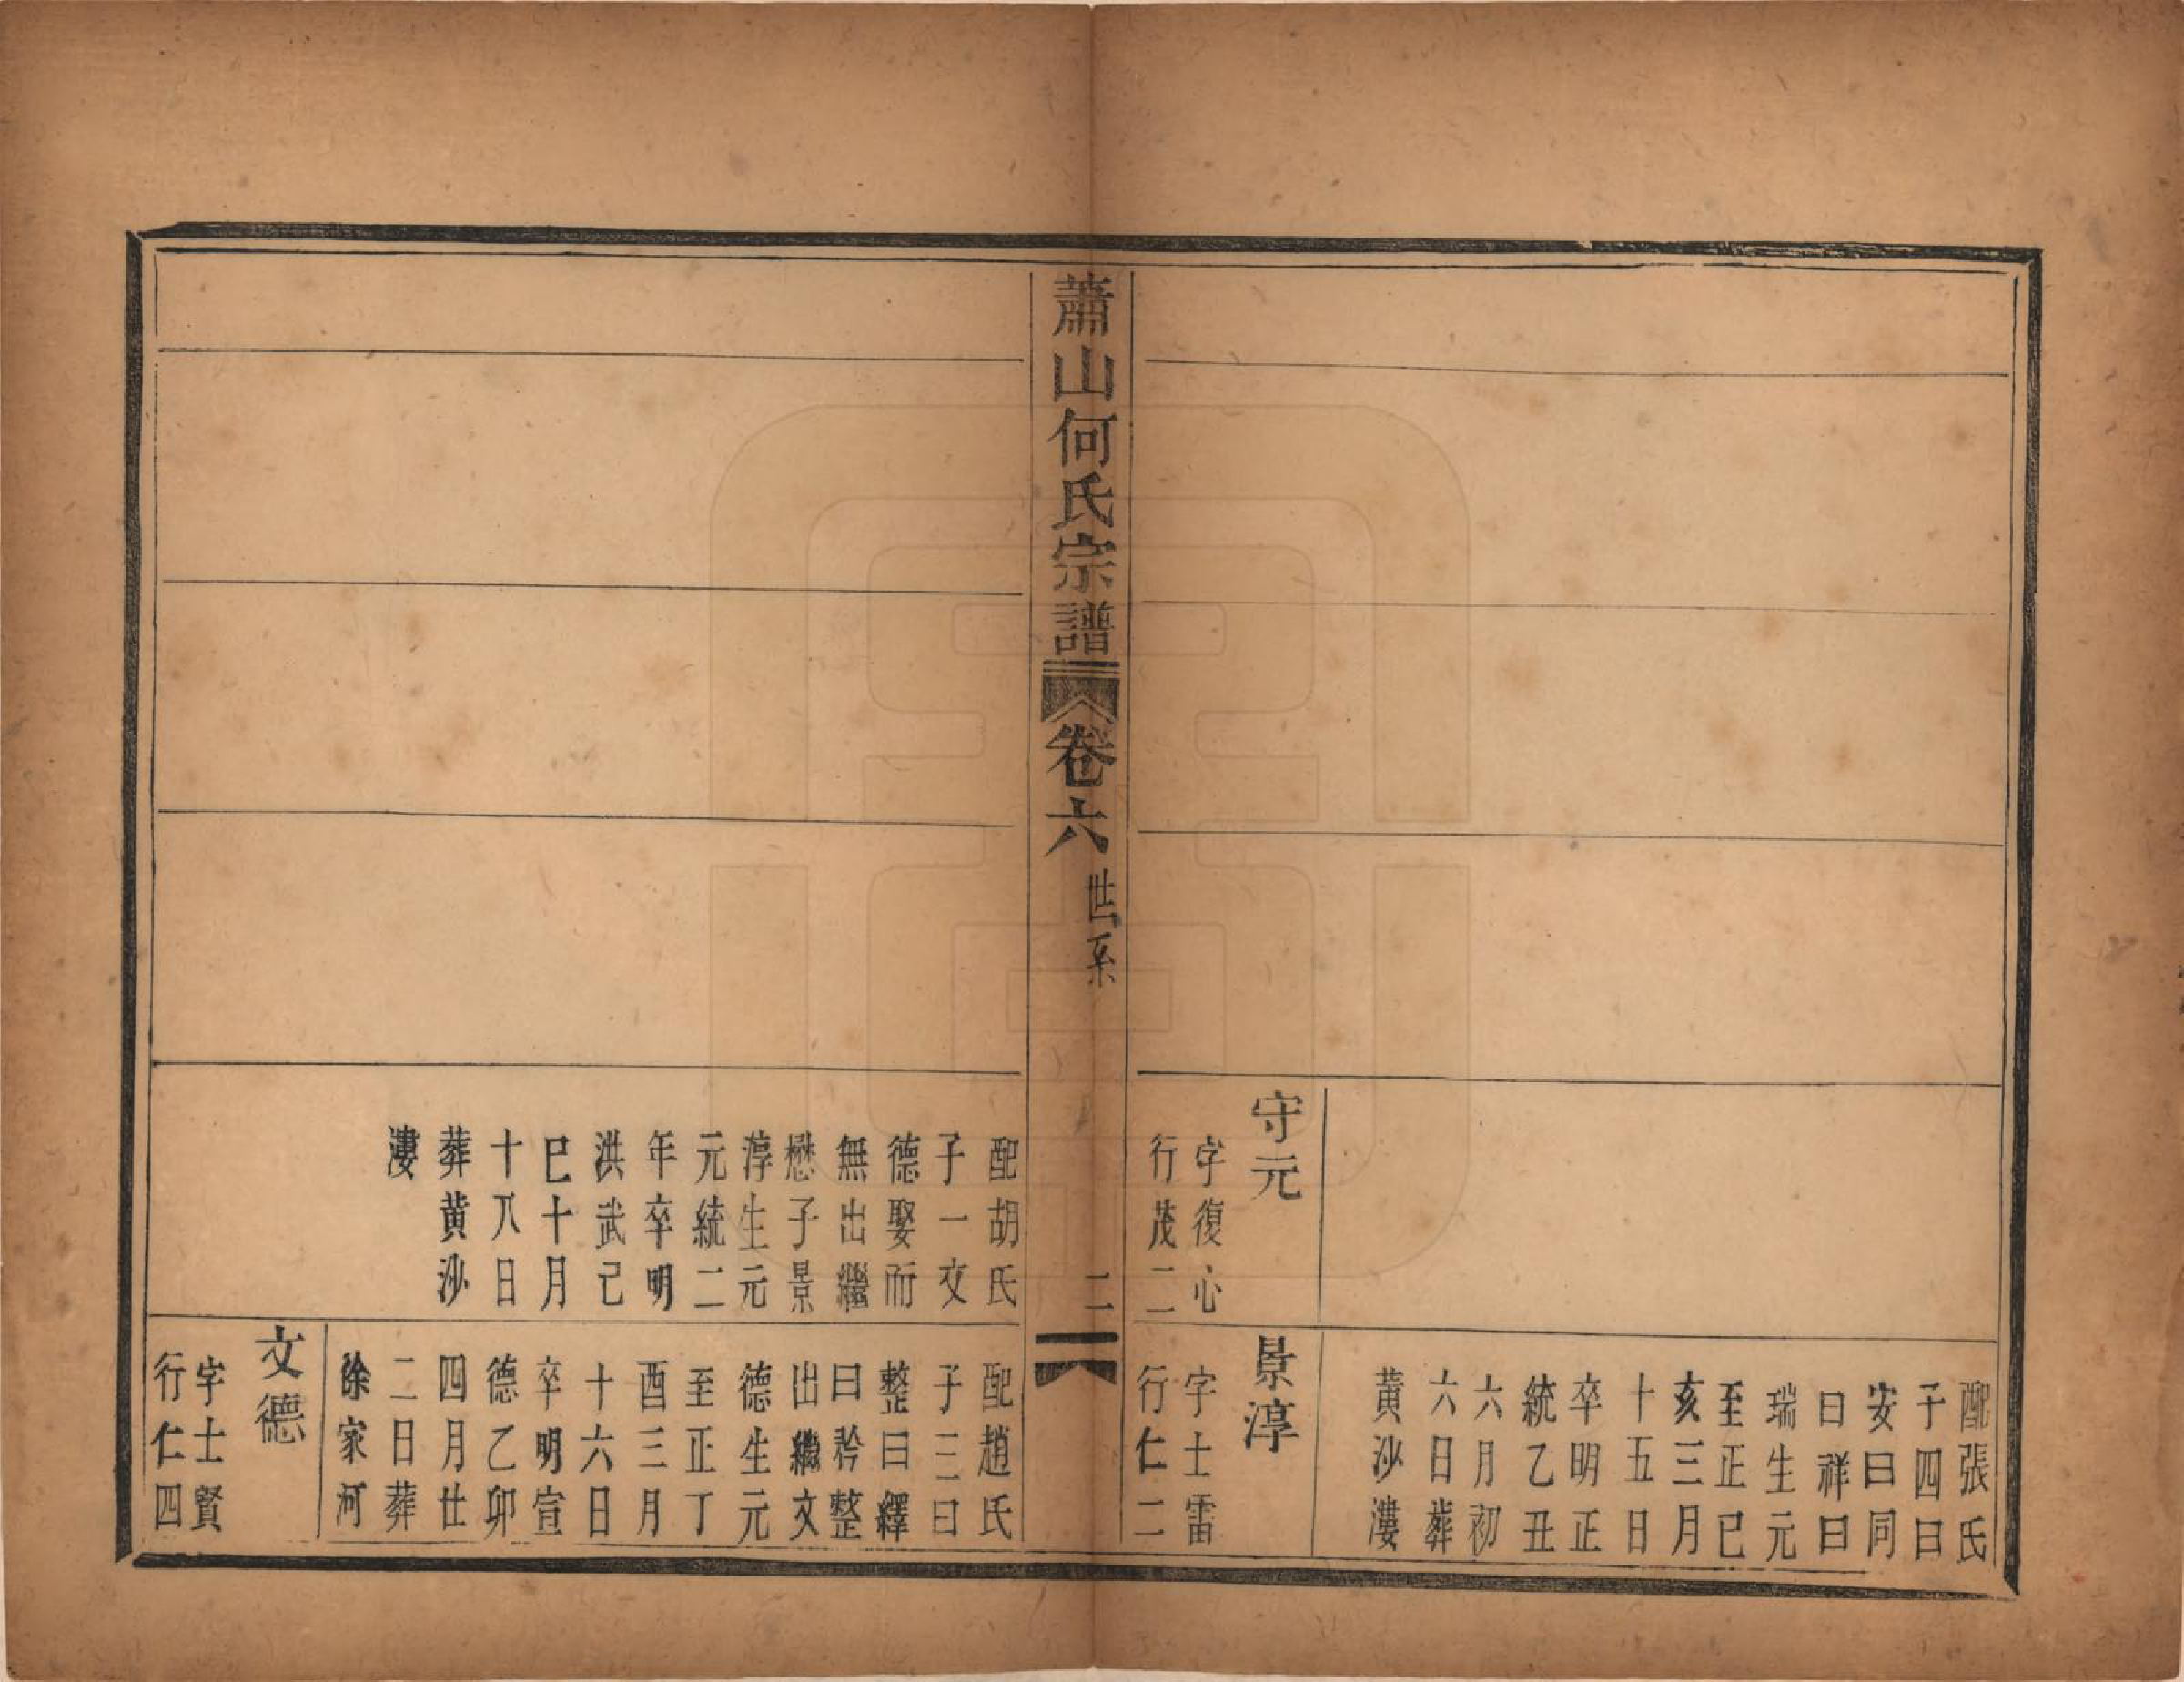 守元
字復心
行茂二
配張氏
子四曰
安曰同
曰祥曰
瑞生元
至正已
亥三月
十五日
卒明正
統乙丑
六月初
六日葬
黃沙漊
景淳
字士雷
行仁二
蕭山何氏宗譜
卷六
世系
二
配胡氏
子一文
德娶而
無出繼
懋子景
淳生元
元統二
年卒明
洪武己
巳十月
十八日
葬黃沙
漊
配趙氏
子三曰
整曰繹
曰衿整
出繼文
德生元
至正丁
酉三月
十六日
卒明宣
德乙卯
四月廿
二日葬
徐家河
文德
字士賢
行仁四